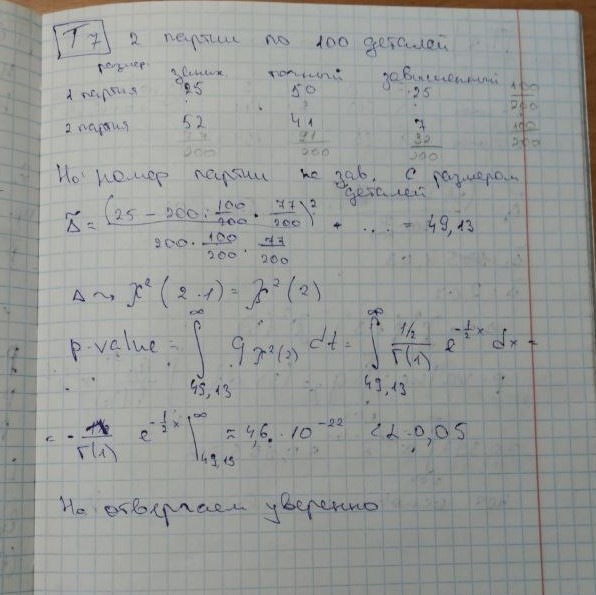 T7 2 партии по 100 деталей
размер заниж. точный завышенный
1 партия 25 50 25 100/200
2 партия 52 41 7 100/200
77/200 91/200 32/200
H₀: номер партии не зав. с размером
деталей
Δ̃ = (25 - 200 · 100/200 · 77/200)² / (200 · 100/200 · 77/200) + ... = 49,13
Δ ~ χ²(2·1) = χ²(2)
p-value = ∫_{49,13}^{∞} q_{χ²(2)} dt = ∫_{49,13}^{∞} (1/2)/Γ(1) e^{-1/2 x} dx =
= - /Γ(1) e^{-1/2 x} |_{49,13}^{∞} = 4,6 · 10^{-22} < α = 0,05
H₀ отвергаем уверенно